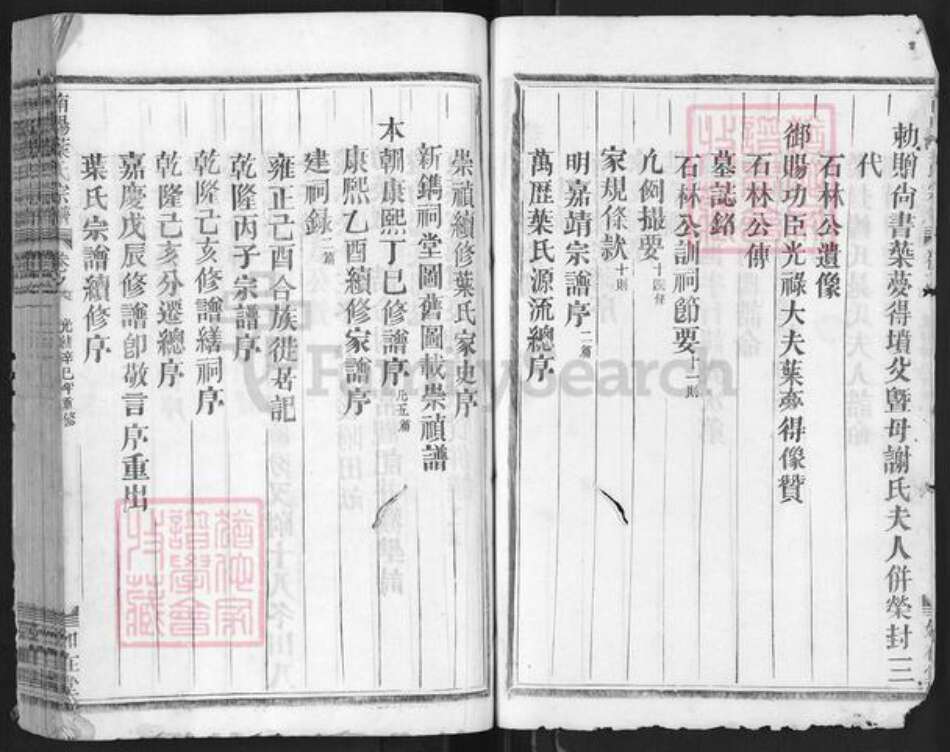 勅贈尙書葉夢得墳父暨母謝氏夫人併榮封三
代
石林公遺像
御賜功臣光祿大夫葉夢得像贊
石林公傳
墓誌銘
石林公訓祠節要十一則
凡例撮要十四條
家規條款十則
明嘉靖宗譜序二篇
萬歷葉氏源流總序
崇禎續修葉氏家史序
新鐫祠堂圖舊圖載崇禎譜
本朝康熙丁巳修譜序凡五篇
康熙乙酉續修家譜序
建祠錄二篇
雍正己酉合族徙居記
乾隆丙子宗譜序
乾隆己亥修譜繕祠序
乾隆己亥分遷總序
嘉慶戊辰修譜卽敬言序重出
葉氏宗譜續修序
南陽葉氏宗譜 卷之 光緒辛巳年重修
猶他家譜學會收藏
猶他家譜學會收藏
FamilySearch